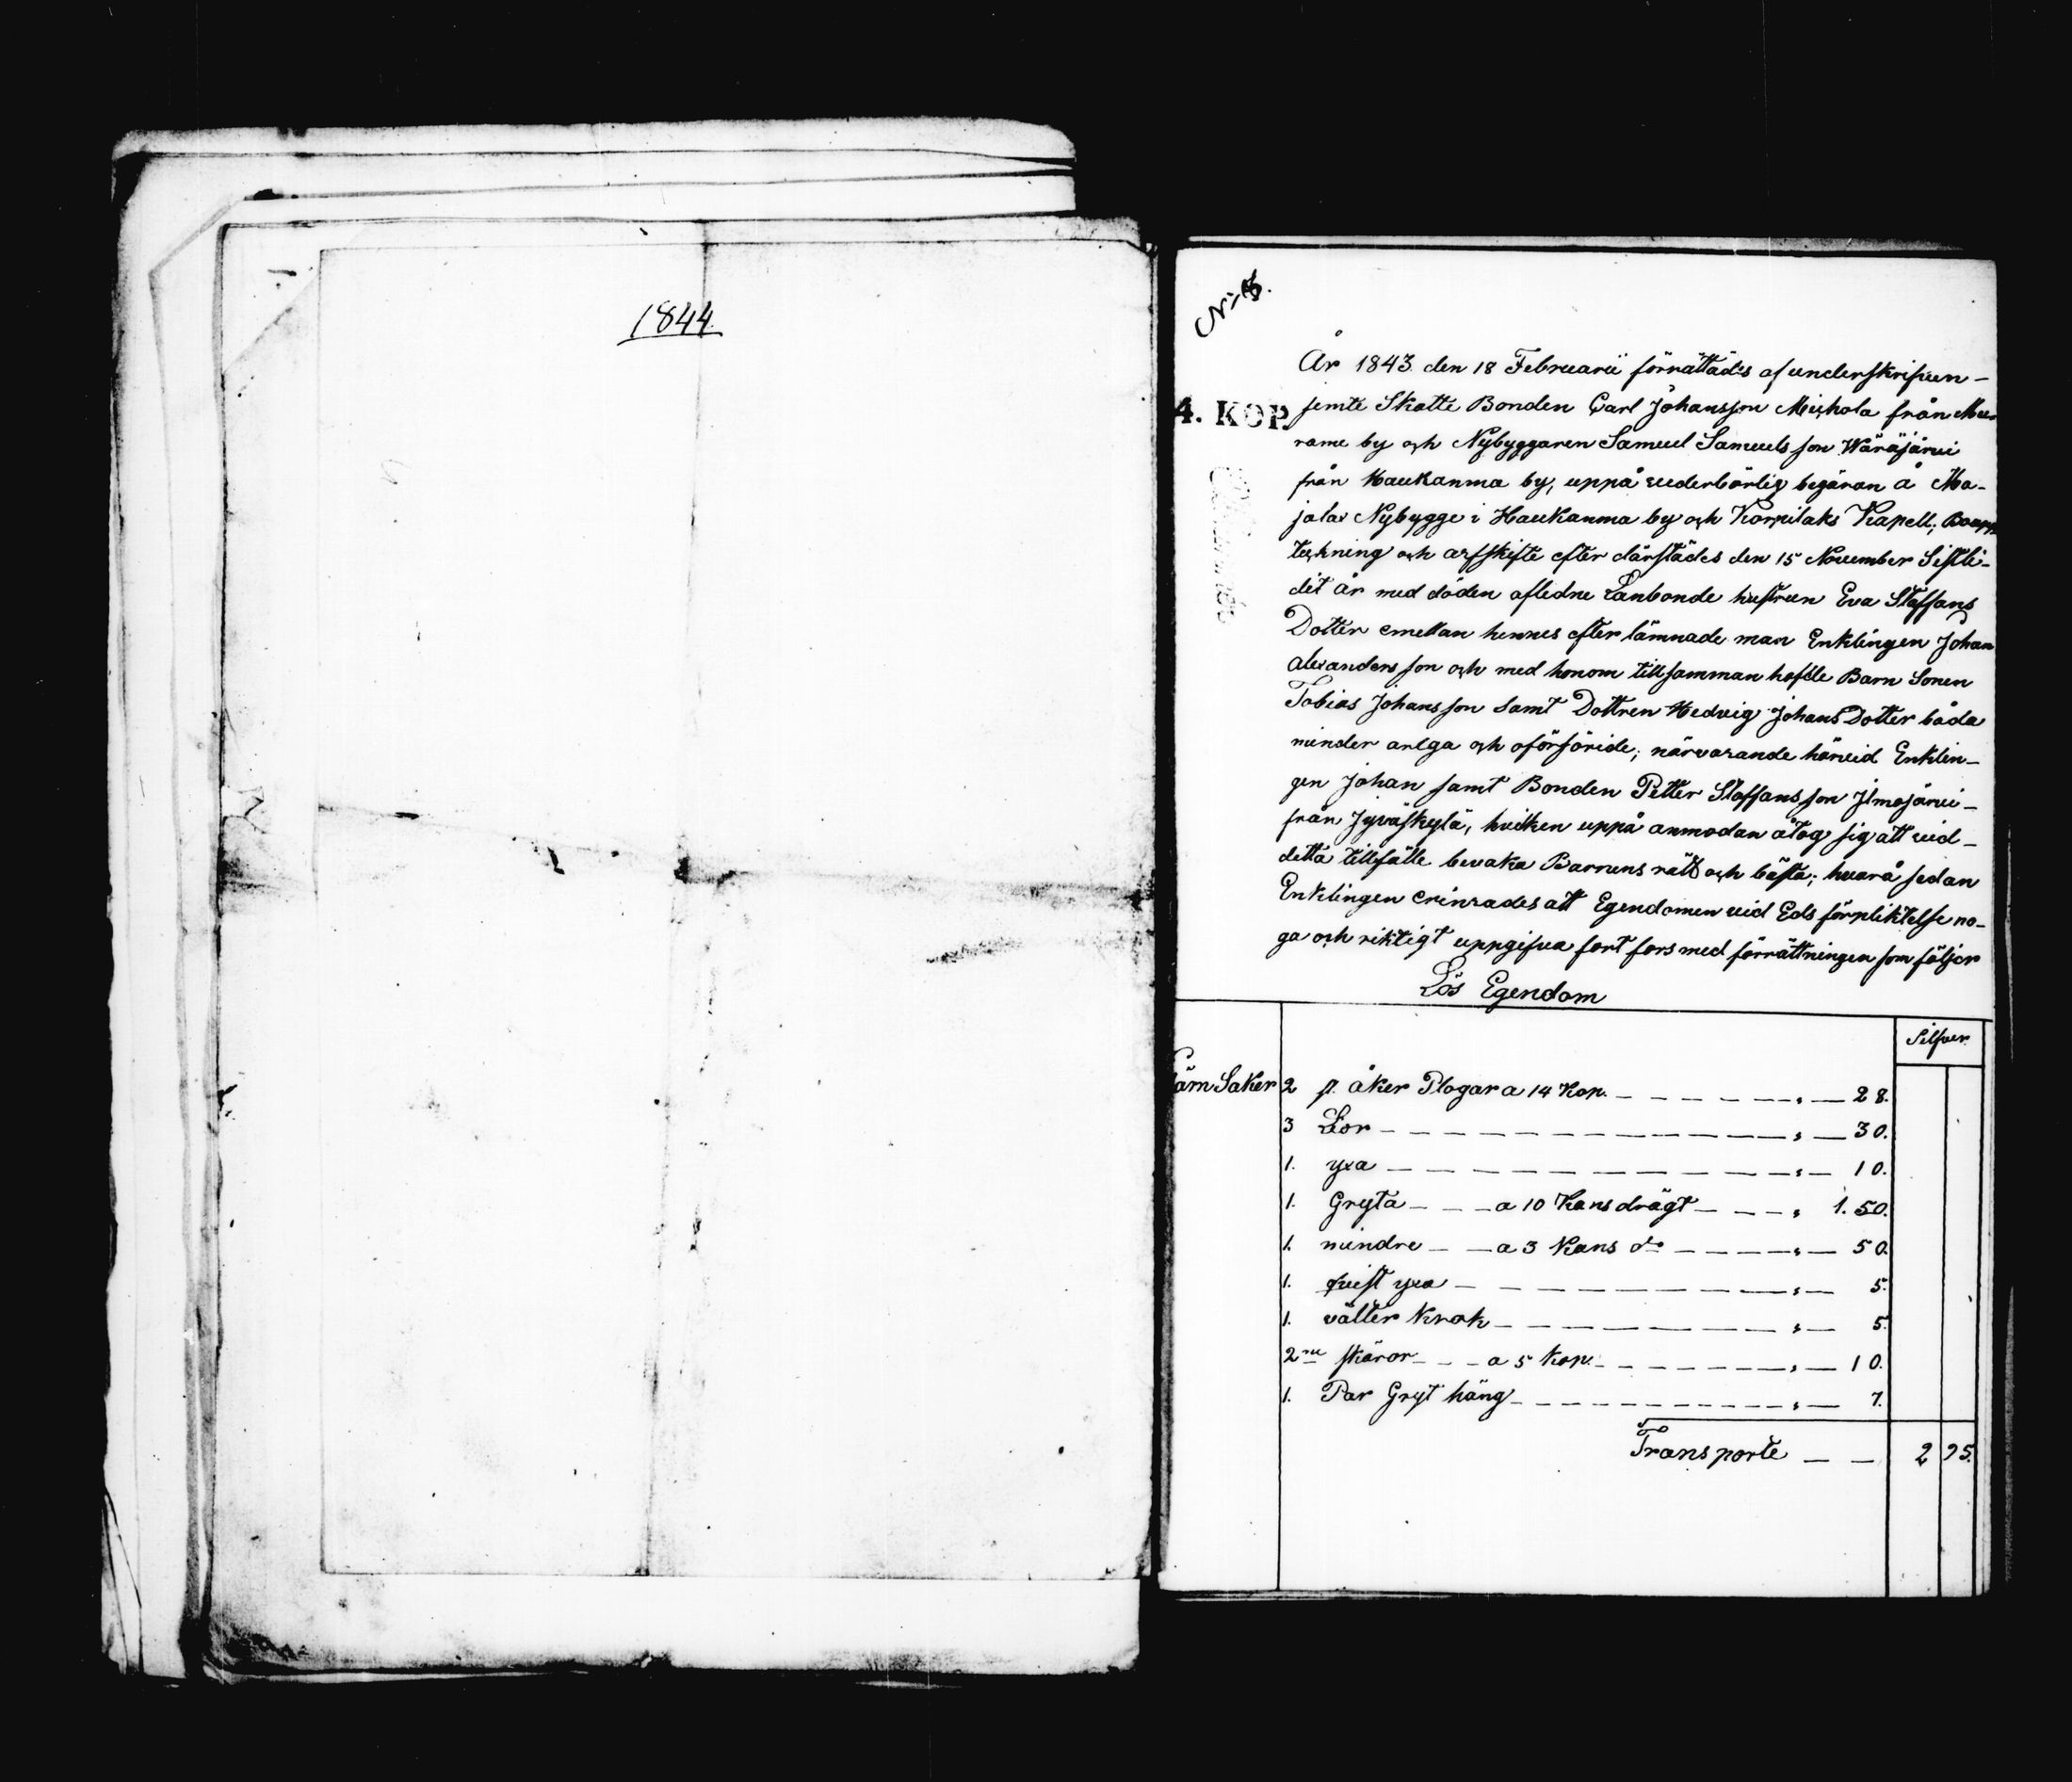 1844.
År 1843 den 18 Februarii förrättades af underskrifven –
4. KOP.
jemte Skatte Bonden Carl Johansson Michola från Muu
rame by och Nybyggaren Samuel Samuels son Wäräjärvi
från Haukanma by, uppå vederbörlig begäran å Ma-
jalax Nybygge i Haukanma by och Korpilaks Kapell, Boupp
teckning och arfskifte efter därstädes den 15 November Sistli-
dit år med döden afledne Lanbonde hustrun Eva Staffans
Dotter emellan hennes efter lämnade man Enklingen Johan
Alexanders son och med honom tillsamman hafde Barn Sonen
Tobias Johans son samt Dottren Hedvig Johans Dotter båda
minder arlga och oförsöride, närvarande härvid Enklin-
gen Johan samt Bonden Petter Staffans son Jlmojärvi –
från Jyväskylä, hvilken uppå anmodan åtog sig att vid –
detta tillfälle bevaka Barnens rätt och bästa, hvarå sedan
Enklingen erinrades att Egendomen vid Eds förpliktelse no-
ga och riktigt uppgifva fort fors med förrättningen som följer
Lös Egendom
Silfver
Järn Saker 2 st. åker Plogar a 14 Kop. – – – – – " — 28.
3 Lior – – – – – – – – – " — 30.
1. yxa – – – – – – – – – " — 10.
1. Gryta – – – a 10 Kans drägt – – – " 1. 50.
1. mindre – – a 3 Kans do – – – – " — 50.
1. qvist yxa – – – – – – – " — 5.
1. välter Krok – – – – – – – " — 5.
2ne skäror – – – a 5 Kop. – – – – – " — 10.
1. Par Gryt häng – – – – – – – " — 7.
Transporte – – 2 95.